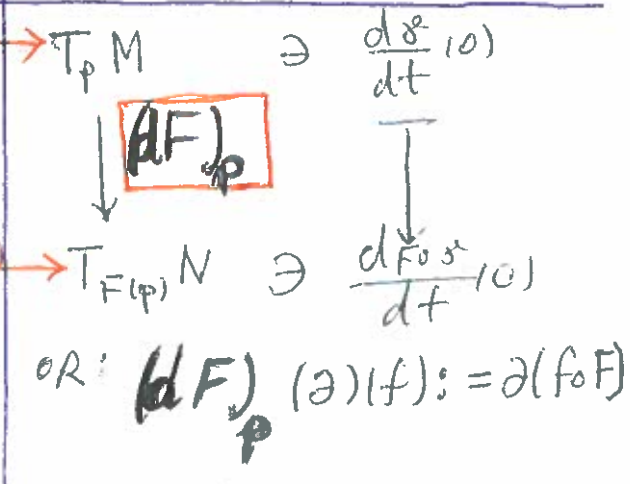 T_p M ∋ dγ/dt (0)
(dF)_p
T_{F(p)} N ∋ dF∘γ/dt (0)
OR: (dF)_p (∂)(f) := ∂(f∘F)